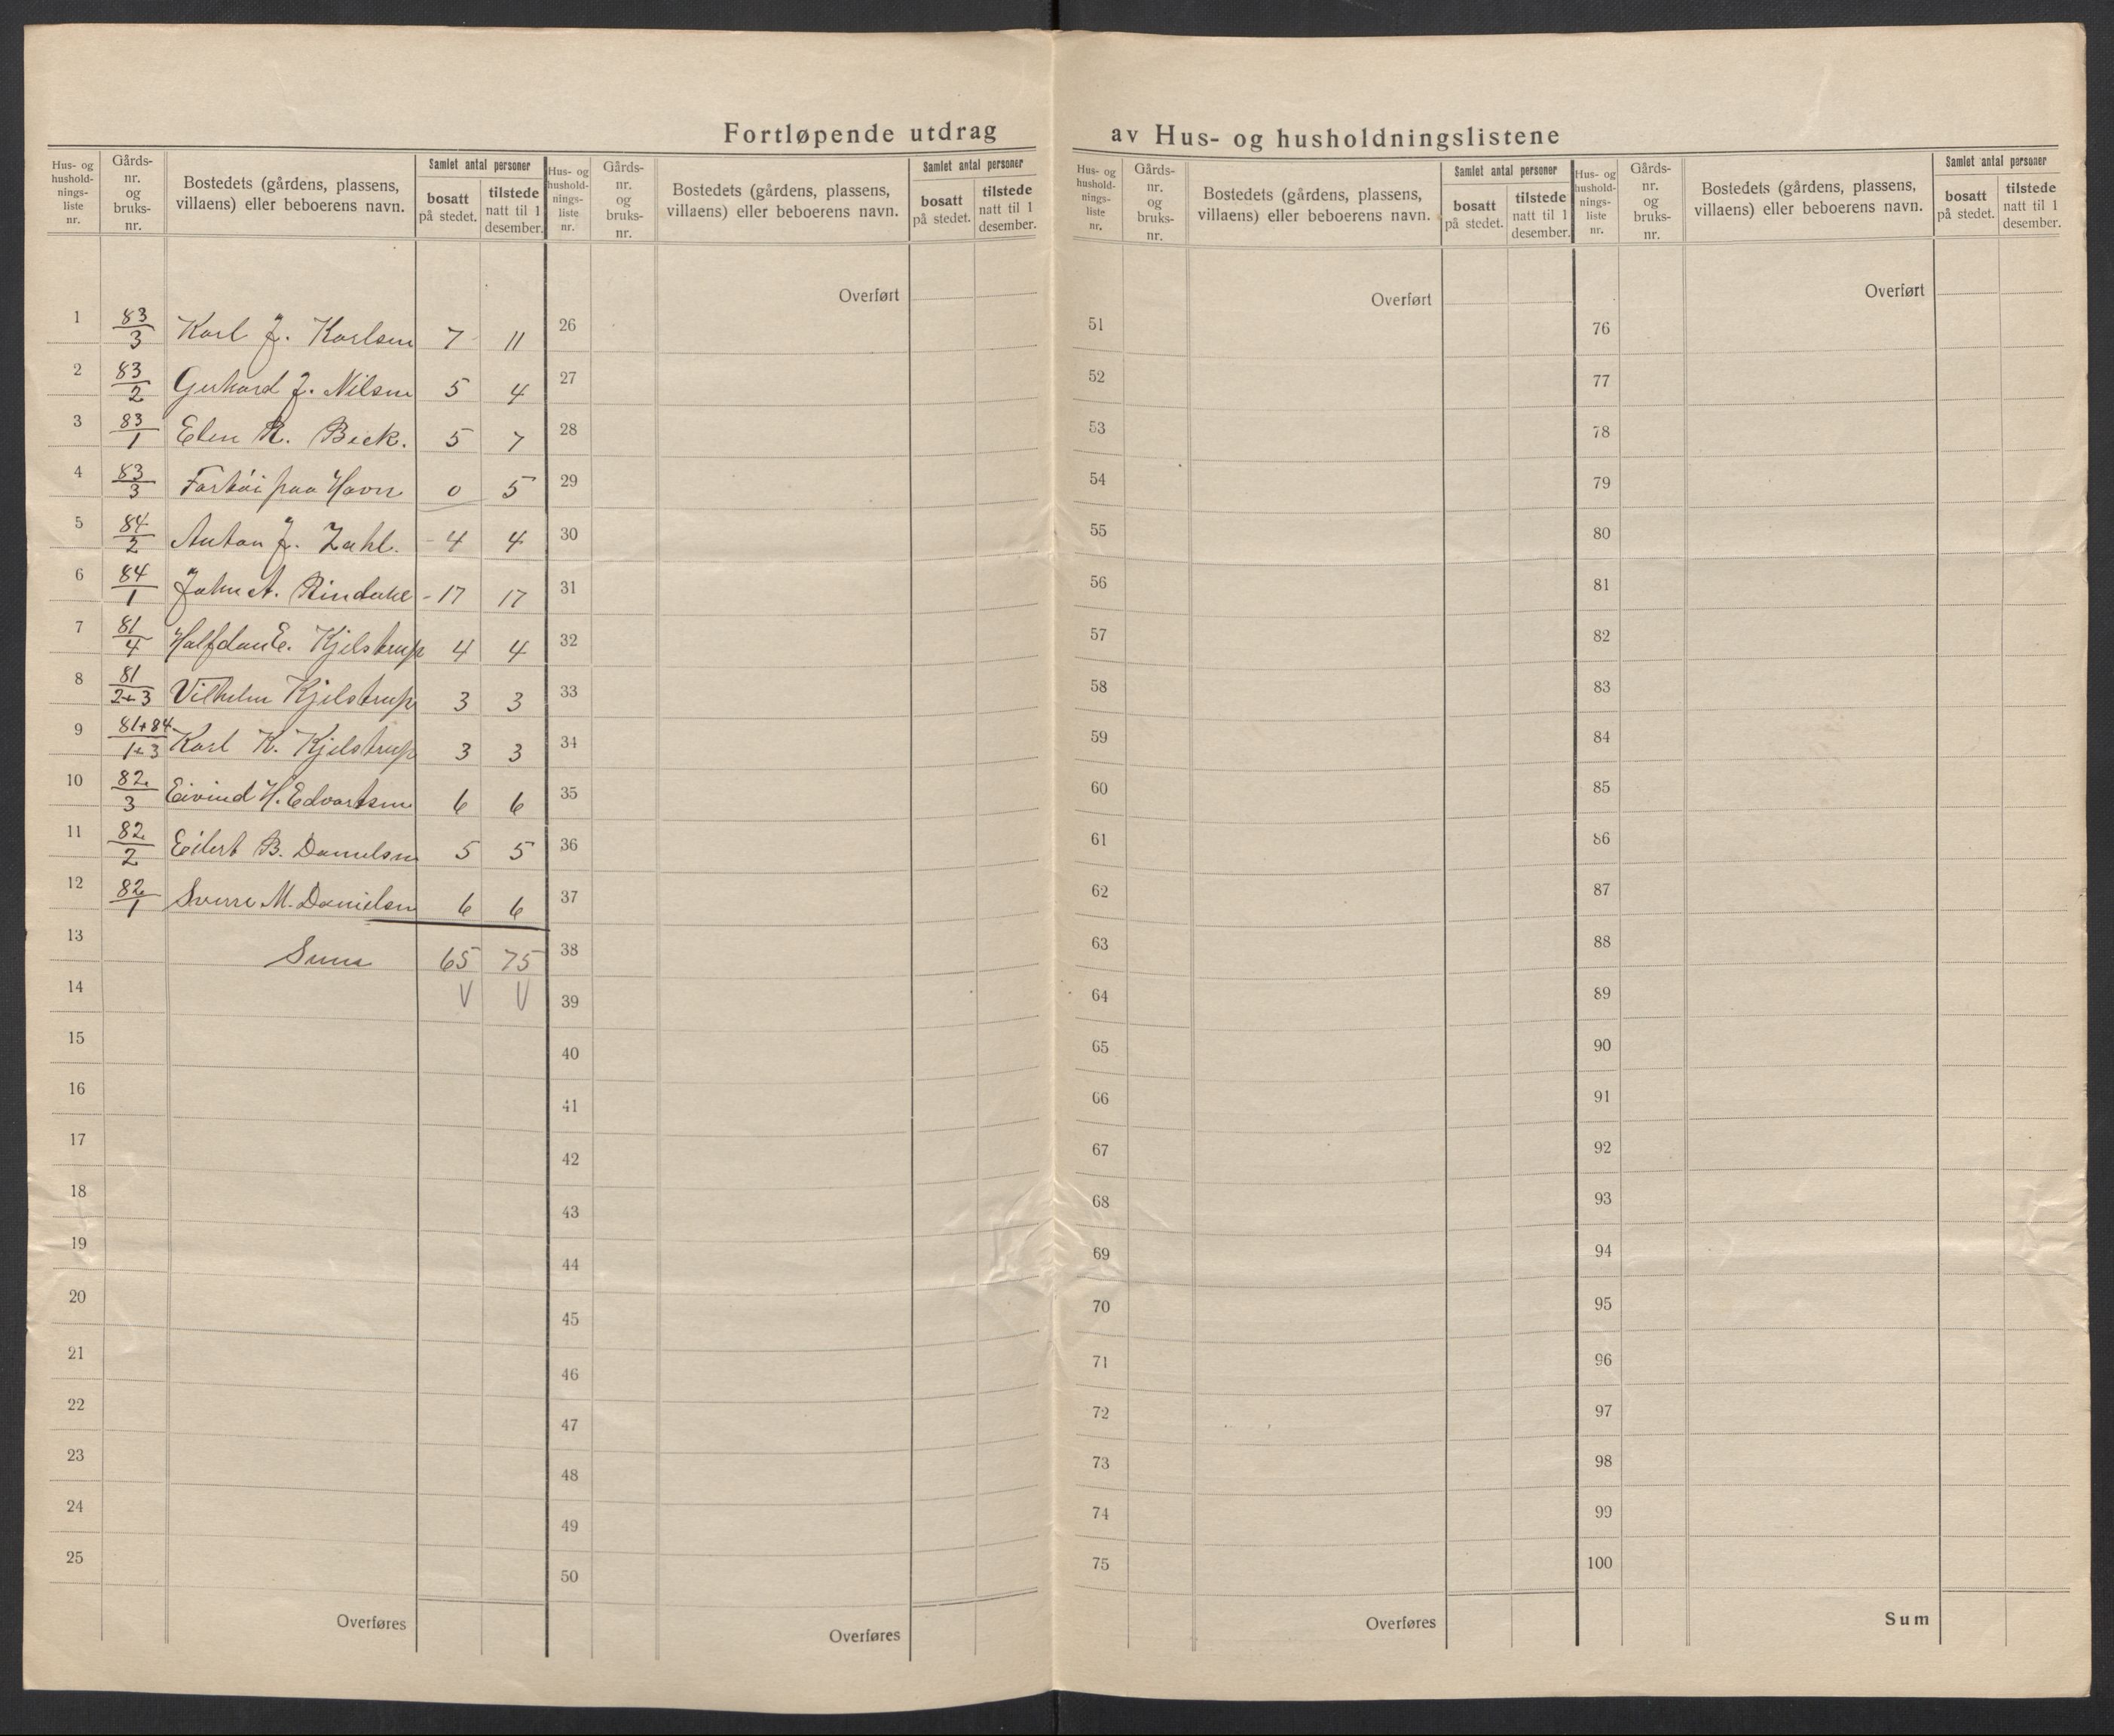 Fortløpende utdrag av Hus- og husholdningslistene
Hus- og hushold-nings-liste nr. | Gårds-nr. og bruks-nr. | Bostedets (gårdens, plassens, villaens) eller beboerens navn. | Samlet antal personer | bosatt på stedet. | tilstede natt til 1 desember.
Hus- og hushold-nings-liste nr. | Gårds-nr. og bruks-nr. | Bostedets (gårdens, plassens, villaens) eller beboerens navn. | Samlet antal personer | bosatt på stedet. | tilstede natt til 1 desember.
Hus- og hushold-nings-liste nr. | Gårds-nr. og bruks-nr. | Bostedets (gårdens, plassens, villaens) eller beboerens navn. | Samlet antal personer | bosatt på stedet. | tilstede natt til 1 desember.
Hus- og hushold-nings-liste nr. | Gårds-nr. og bruks-nr. | Bostedets (gårdens, plassens, villaens) eller beboerens navn. | Samlet antal personer | bosatt på stedet. | tilstede natt til 1 desember.
1 83/3 Karl J. Karlsen 7 11
2 83/2 Gerhard J. Nilsen 5 4
3 83/1 Elen R. Beck. 5 7
4 83/3 Fartøi paa Havn 0 5
5 84/2 Anton J. Zahl. - 4 4
6 84/1 John A. Rindahl - 17 17
7 81/4 Halfdan E. Kjelstrup 4 4
8 81/2+3 Vilhelm Kjelstrup 3 3
9 81+84/1+3 Karl K. Kjelstrup 3 3
10 82/3 Eivind H. Edvartsen 6 6
11 82/2 Eilert B. Danielsen 5 5
12 82/1 Sverre M. Danielsen 6 6
13 Sum 65 75
14 V V
15
16
17
18
19
20
21
22
23
24
25
Overføres
Overført
26
27
28
29
30
31
32
33
34
35
36
37
38
39
40
41
42
43
44
45
46
47
48
49
50
Overføres
Overført
51
52
53
54
55
56
57
58
59
60
61
62
63
64
65
66
67
68
69
70
71
72
73
74
75
Overføres
Overført
76
77
78
79
80
81
82
83
84
85
86
87
88
89
90
91
92
93
94
95
96
97
98
99
100
Sum